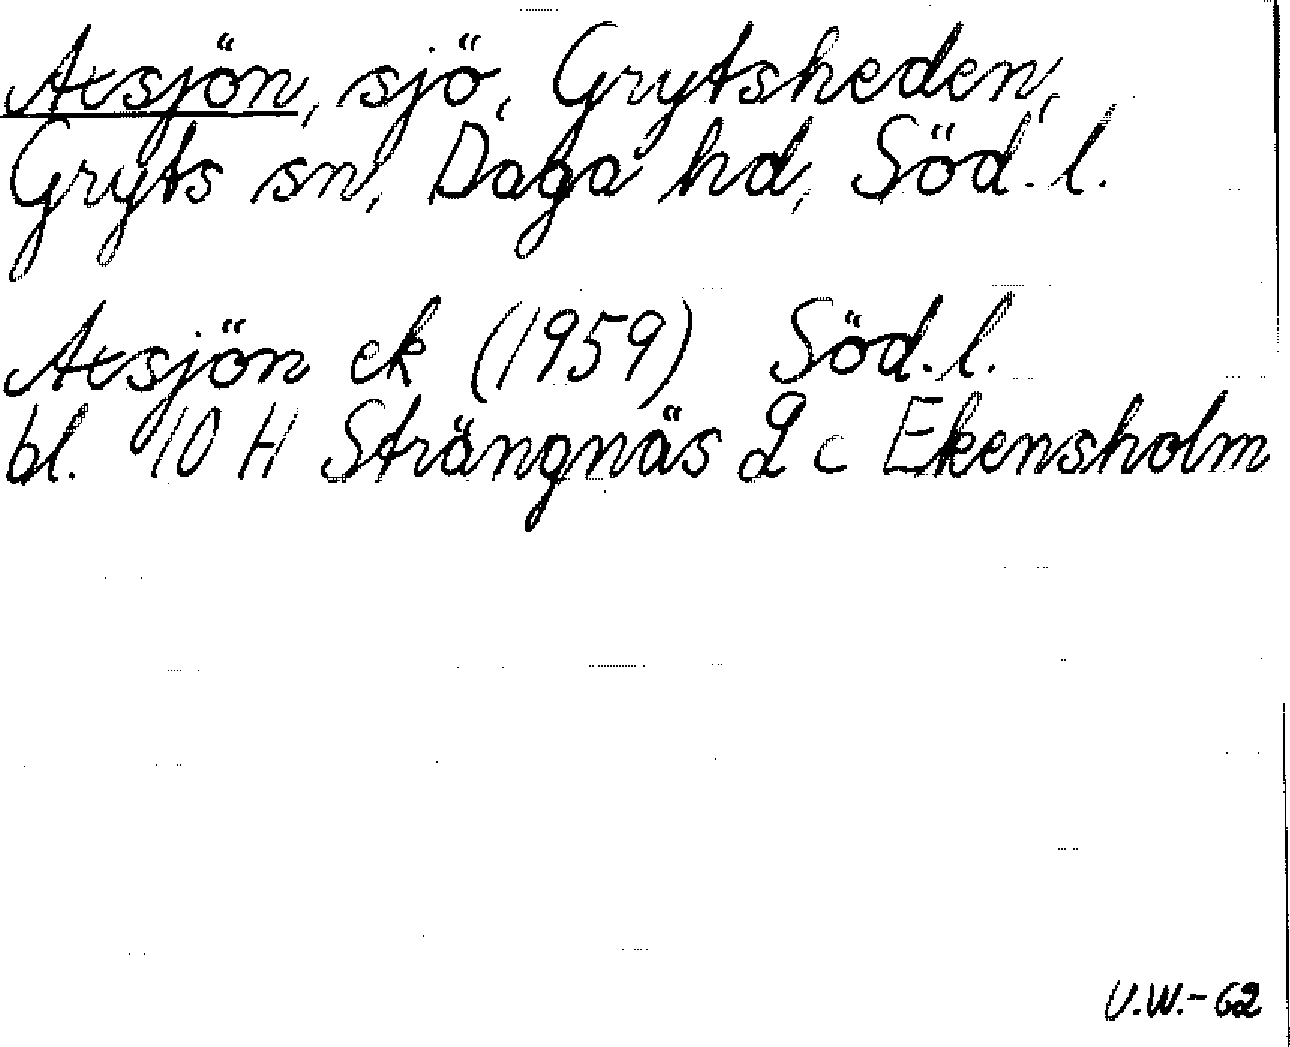 Axsjön, sjö, Grytsheden,
Gryts sn, Daga hd, Söd. l.
Axsjön ek (1959) Söd. l.
bl. 10 H Strängnäs 2 c Ekensholm
V.W.-62